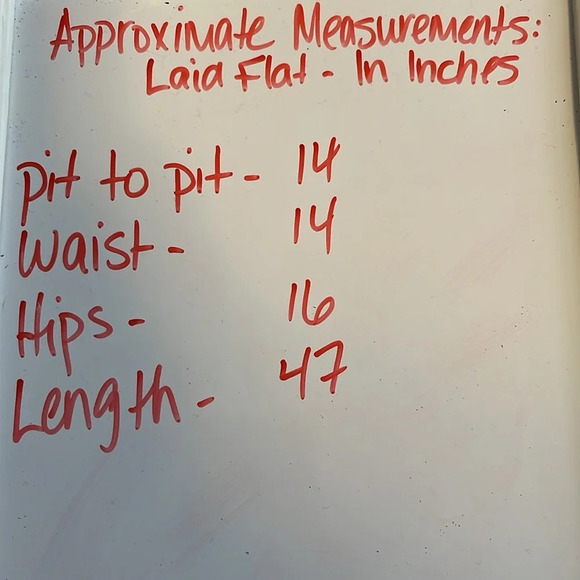 Approximate Measurements:
Laid Flat - In Inches
pit to pit - 14
Waist - 14
Hips - 16
Length - 47